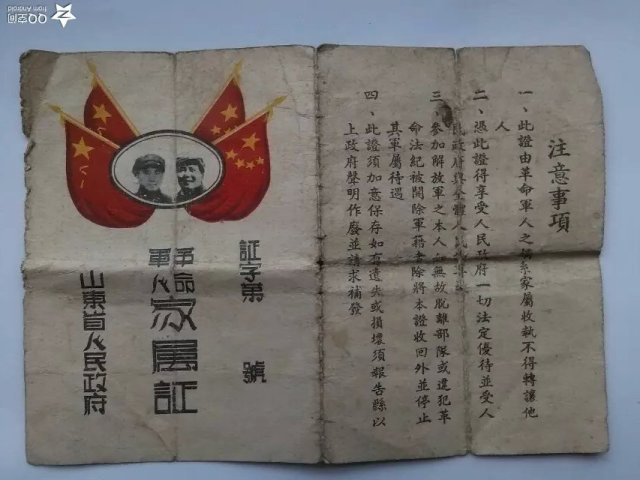 注意事項
一、此證由革命軍人之直系家屬收執不得轉讓他
人
二、憑此證得享受人民政府一切法定優待並受人
民政府與全體人民
三、參加解放軍之本人如無故脫離部隊或違犯革
命法紀被開除軍籍者除將本證收回外並停止
其軍屬待遇
四、此證須加意保存如有遺失或損壞須報告縣以
上政府聲明作廢並請求補發
証字第 號
革命
軍人
家屬証
山東省人民政府
QQ空间
from Android